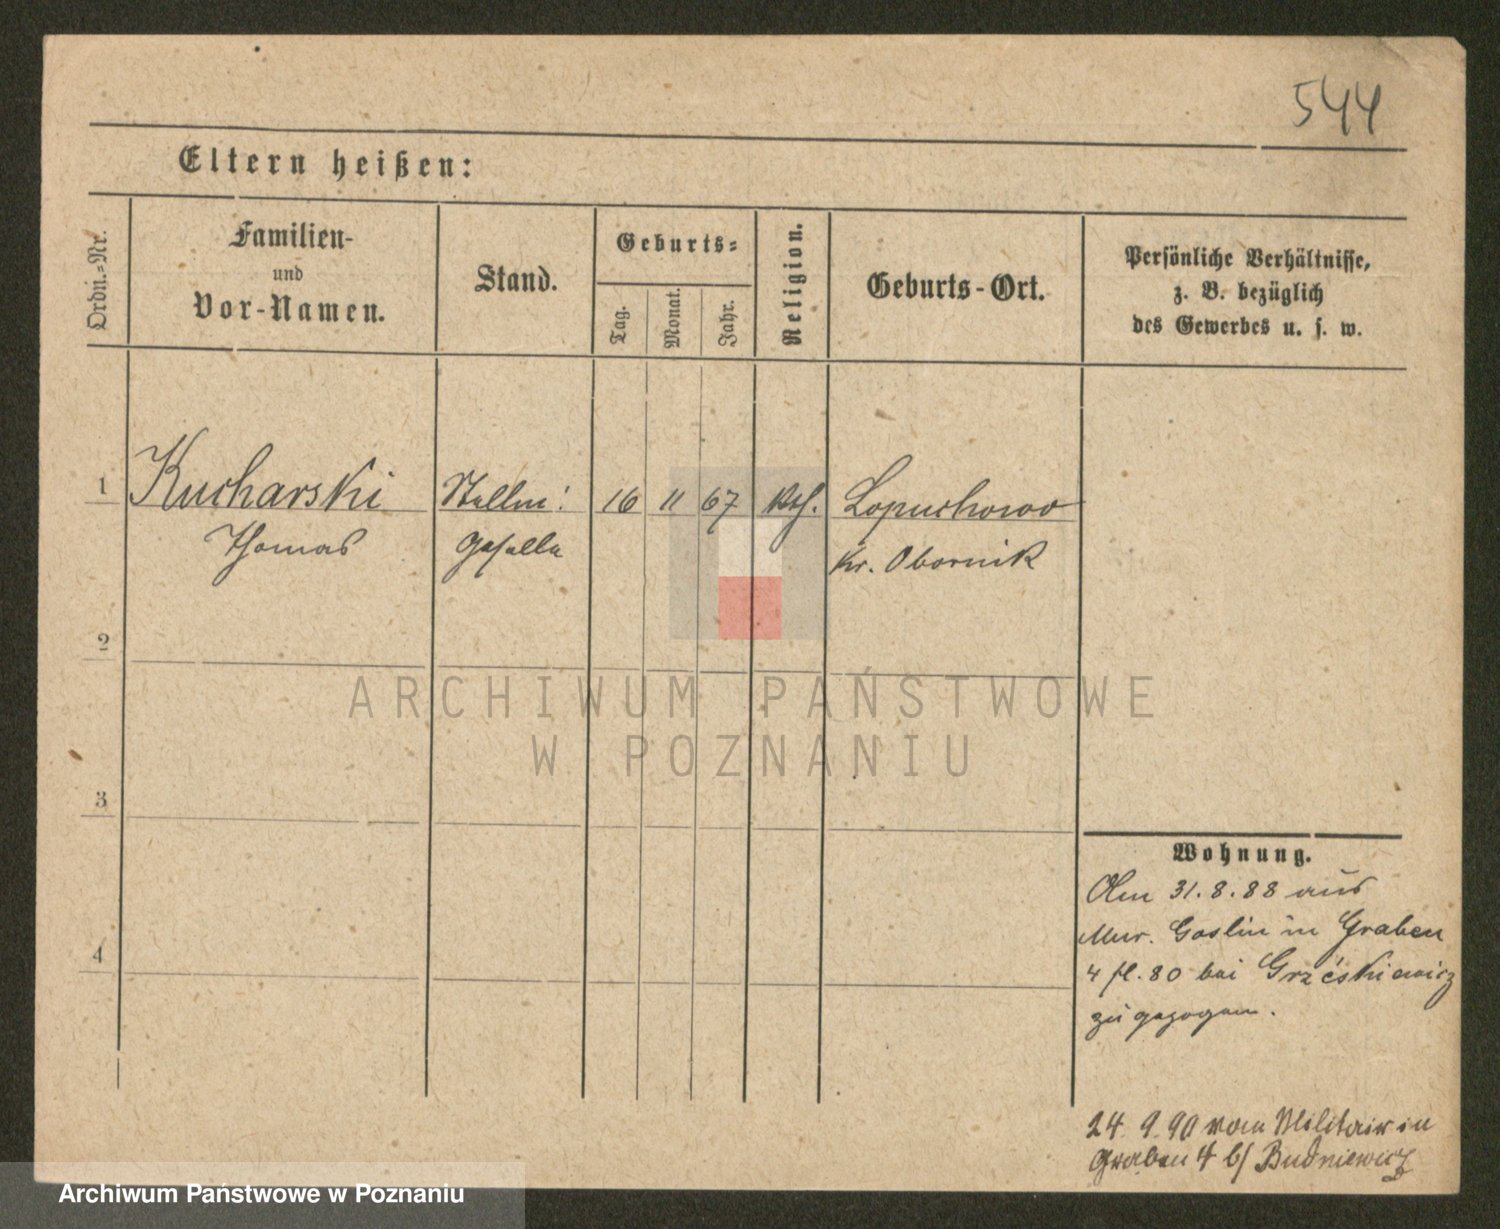 544
Eltern heißen:
Ordn.-Nr.
Familien-
und
Vor-Namen.
Stand.
Geburts-
Tag.
Monat.
Jahr.
Religion.
Geburts-Ort.
Persönliche Verhältnisse,
z. B. bezüglich
des Gewerbes u. s. w.
1
Kucharski
Thomas
Stellm:
Geselle
16
11
67
kth.
Lopuchowo
Kr. Obornik
2
3
4
ARCHIWUM PAŃSTWOWE
W POZNANIU
Wohnung.
Am 31.8.88 aus
Mur. Goslin in Graben
4 fl. 80 bei Grześkiewicz
zugezogen.
24 9.90 vom Militair in
Graben 4 b/ Budniewicz
Archiwum Państwowe w Poznaniu